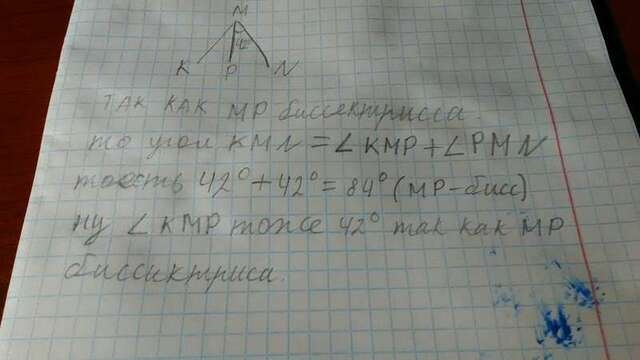 M
K P N
так как MP биссектрисса
то угол KMN = ∠KMP + ∠PMN
тоесть 42° + 42° = 84° (MP-бисс)
ну ∠KMP тоже 42° так как MP
биссиктриса.